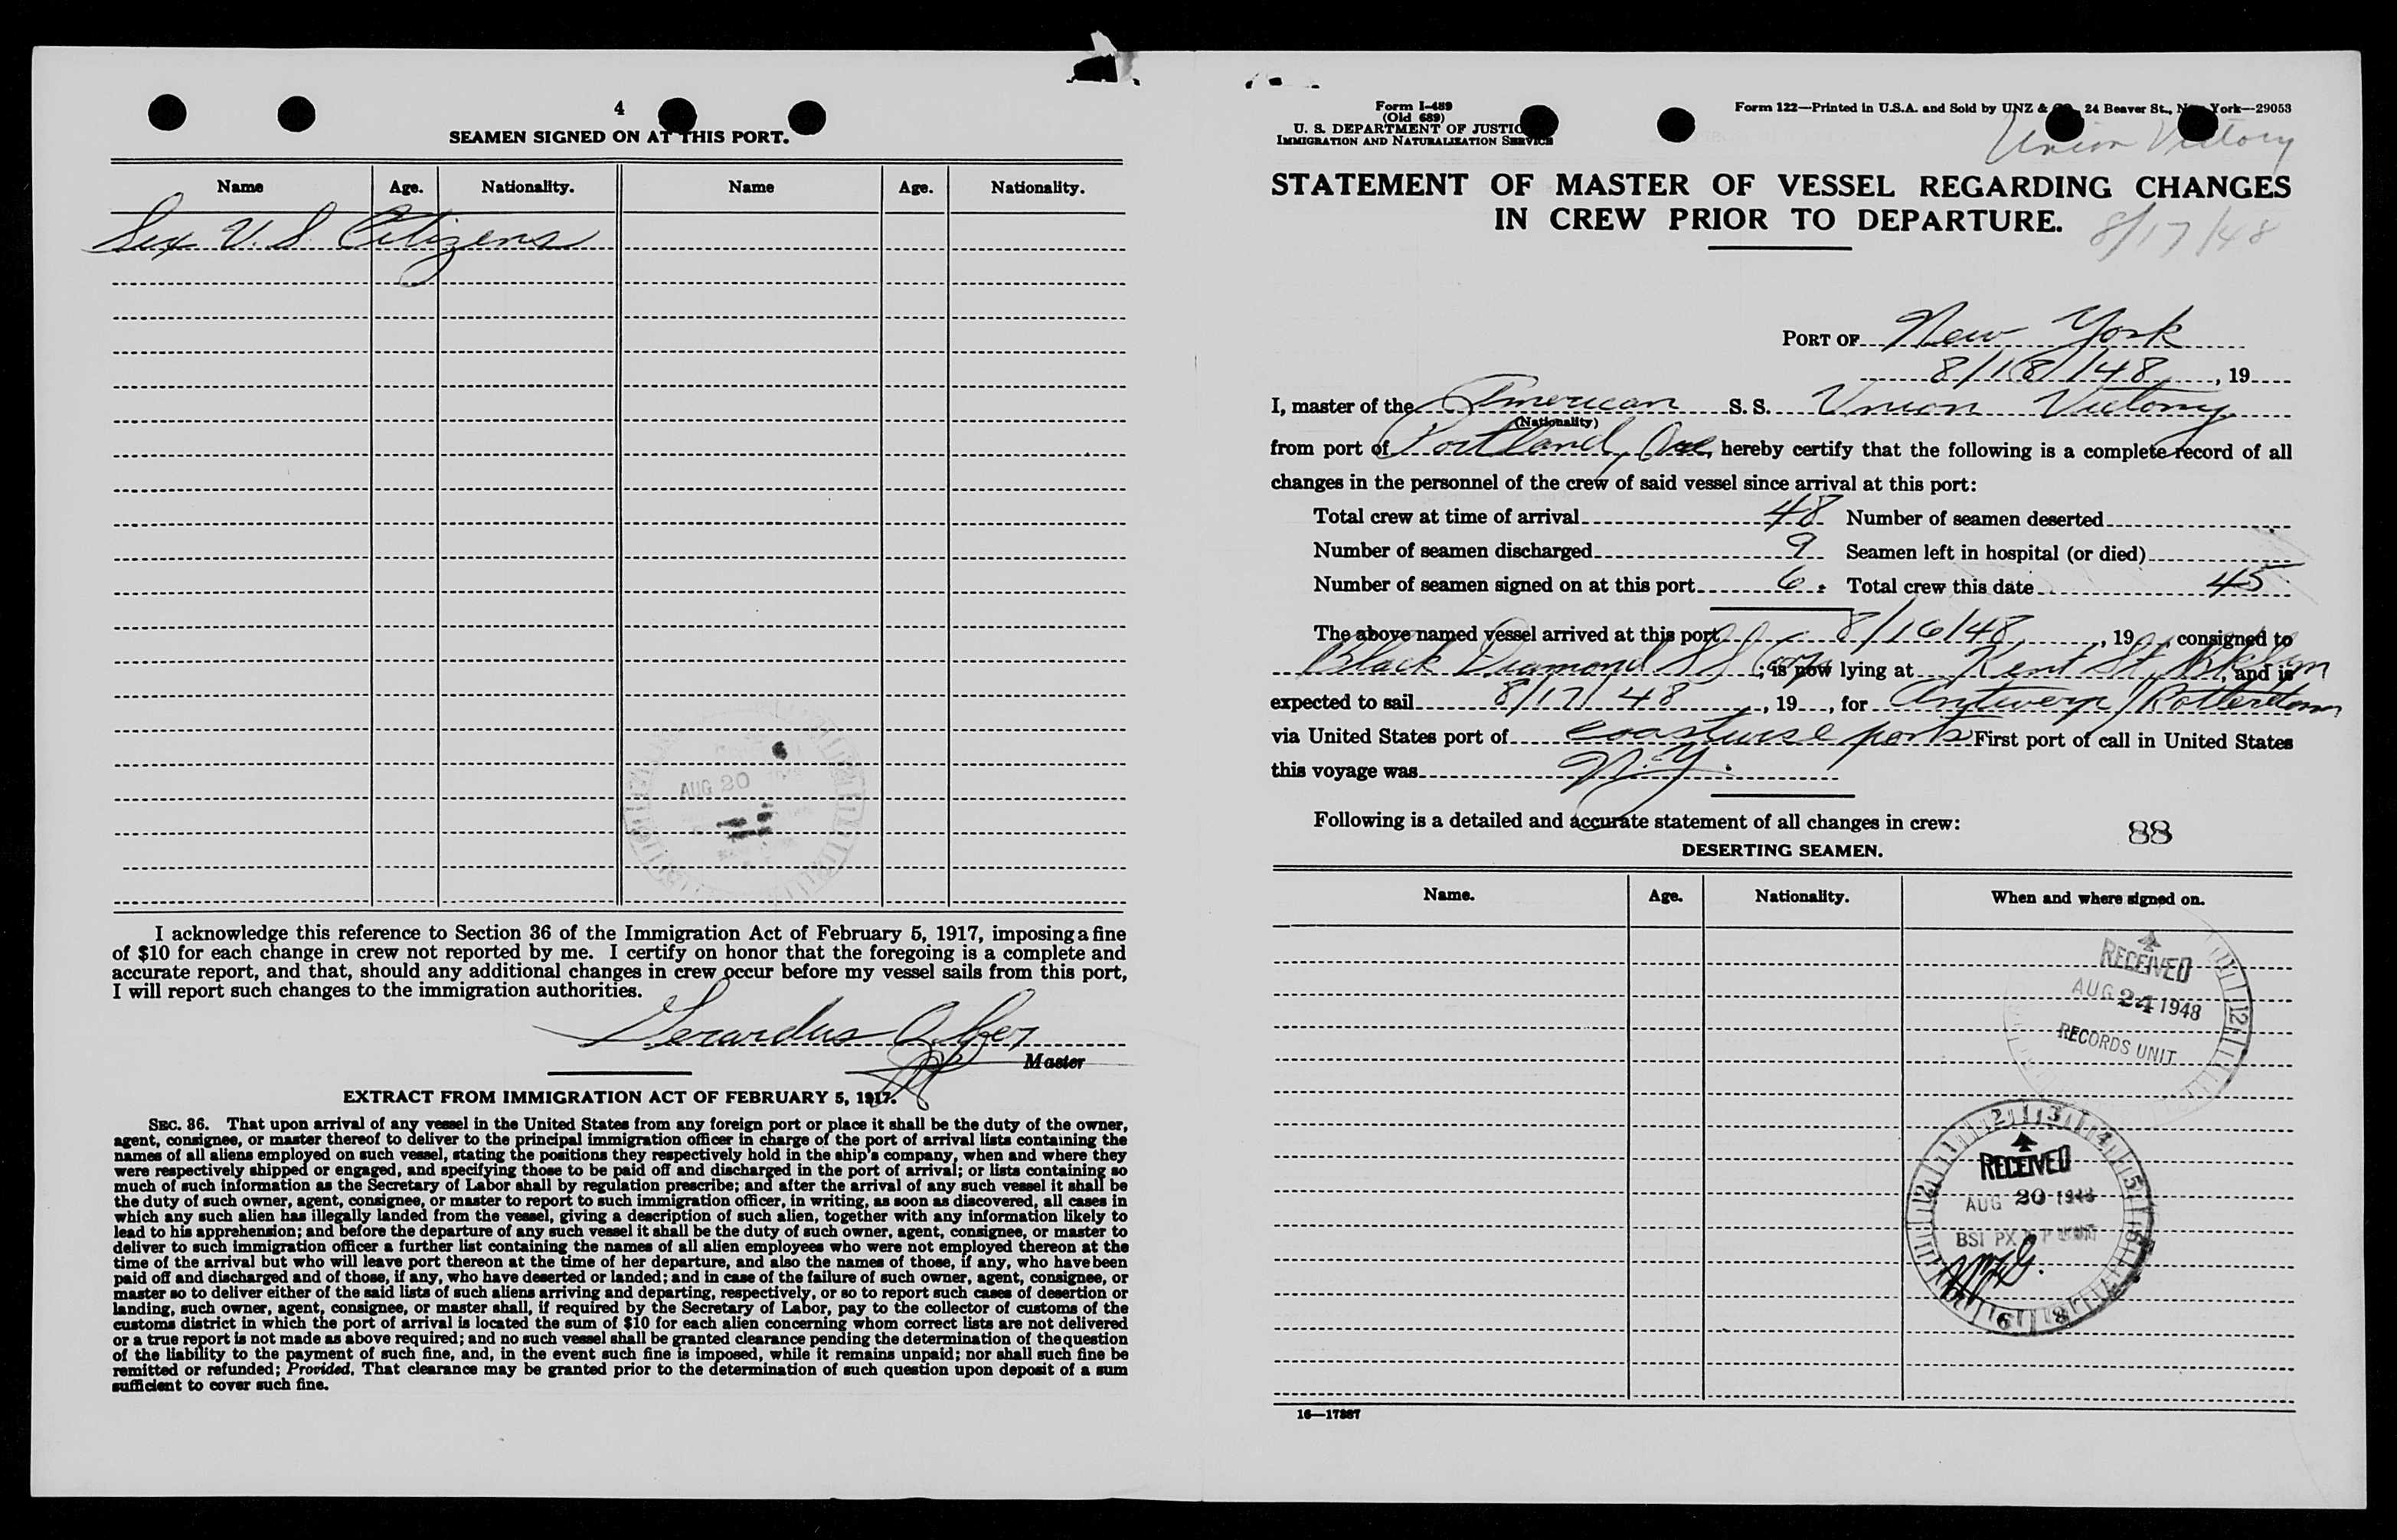 4
SEAMEN SIGNED ON AT THIS PORT.
Name Age. Nationality. Name Age. Nationality.
Six U. S. Citizens
AUG 20
I acknowledge this reference to Section 36 of the Immigration Act of February 5, 1917, imposing a fine
of $10 for each change in crew not reported by me. I certify on honor that the foregoing is a complete and
accurate report, and that, should any additional changes in crew occur before my vessel sails from this port,
I will report such changes to the immigration authorities.
Gerardus
Master
EXTRACT FROM IMMIGRATION ACT OF FEBRUARY 5, 1917.
SEC. 36. That upon arrival of any vessel in the United States from any foreign port or place it shall be the duty of the owner,
agent, consignee, or master thereof to deliver to the principal immigration officer in charge of the port of arrival lists containing the
names of all aliens employed on such vessel, stating the positions they respectively hold in the ship's company, when and where they
were respectively shipped or engaged, and specifying those to be paid off and discharged in the port of arrival; or lists containing so
much of such information as the Secretary of Labor shall by regulation prescribe; and after the arrival of any such vessel it shall be
the duty of such owner, agent, consignee, or master to report to such immigration officer, in writing, as soon as discovered, all cases in
which any such alien has illegally landed from the vessel, giving a description of such alien, together with any information likely to
lead to his apprehension; and before the departure of any such vessel it shall be the duty of such owner, agent, consignee, or master to
deliver to such immigration officer a further list containing the names of all alien employees who were not employed thereon at the
time of the arrival but who will leave port thereon at the time of her departure, and also the names of those, if any, who have been
paid off and discharged and of those, if any, who have deserted or landed; and in case of the failure of such owner, agent, consignee, or
master so to deliver either of the said lists of such aliens arriving and departing, respectively, or so to report such cases of desertion or
landing, such owner, agent, consignee, or master shall, if required by the Secretary of Labor, pay to the collector of customs of the
customs district in which the port of arrival is located the sum of $10 for each alien concerning whom correct lists are not delivered
or a true report is not made as above required; and no such vessel shall be granted clearance pending the determination of the question
of the liability to the payment of such fine, and, in the event such fine is imposed, while it remains unpaid; nor shall such fine be
remitted or refunded; Provided, That clearance may be granted prior to the determination of such question upon deposit of a sum
sufficient to cover such fine.
Form I-489
(Old 689)
U. S. DEPARTMENT OF JUSTICE
IMMIGRATION AND NATURALIZATION SERVICE
Form 122—Printed in U.S.A. and Sold by UNZ & CO., 24 Beaver St., New York—29053
Union Victory
STATEMENT OF MASTER OF VESSEL REGARDING CHANGES
IN CREW PRIOR TO DEPARTURE.
8/17/48
PORT OF New York
8/18/48, 19
I, master of the American S. S. Union Victory
(Nationality)
from port of Portland, Ore, hereby certify that the following is a complete record of all
changes in the personnel of the crew of said vessel since arrival at this port:
Total crew at time of arrival 48 Number of seamen deserted
Number of seamen discharged 9 Seamen left in hospital (or died)
Number of seamen signed on at this port 6. Total crew this date 45
The above named vessel arrived at this port 8/16/48, 19, consigned to
Black Diamond SS Corp; is now lying at Kent St, Bklyn, and is
expected to sail 8/17/48, 19, for Antwerp/Rotterdam
via United States port of coastwise ports First port of call in United States
this voyage was N.Y.
Following is a detailed and accurate statement of all changes in crew:
88
DESERTING SEAMEN.
Name. Age. Nationality. When and where signed on.
RECEIVED
AUG 24 1948
RECORDS UNIT
12
2 3 4 5 6 7 8 9 10 11 12
RECEIVED
AUG 20 1948
BSI PX
16—17387